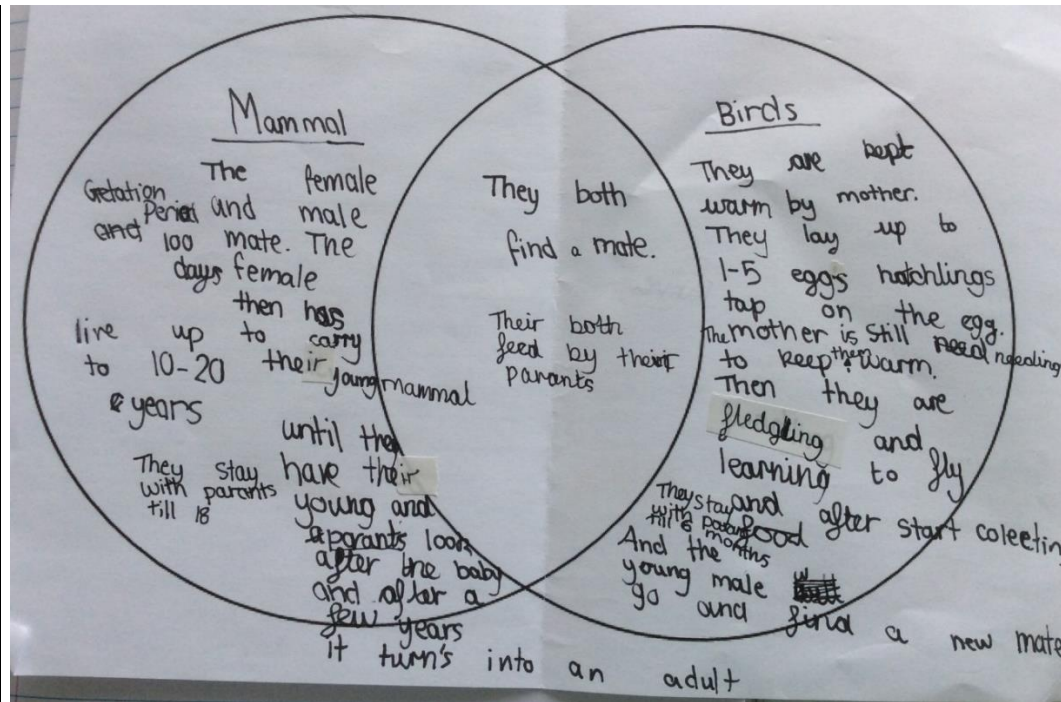 Mammal
The female
and male
mate. The
female
then has
to carry
their young mammal
until the
have their
young and
parants look
after the baby
and after a
few years
it turn's into an adult
Getation
Period
and 100
days
live up
to 10-20
years
They stay
with parants
till 18
They both
find a mate.
Their both
feed by their
parants
Birds
They are kept
warm by mother.
They lay up to
1-5 eggs hatchlings
tap on the egg.
The mother is still needing
to keep them warm.
Then they are
fledgling and
learning to fly
and after start coleetin
food
They stay
with parant
till 6 months
And the
young male
go and find a new mate